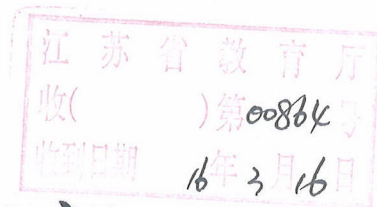 江苏省教育厅
收(  )第00864号
收到日期 16年3月16日